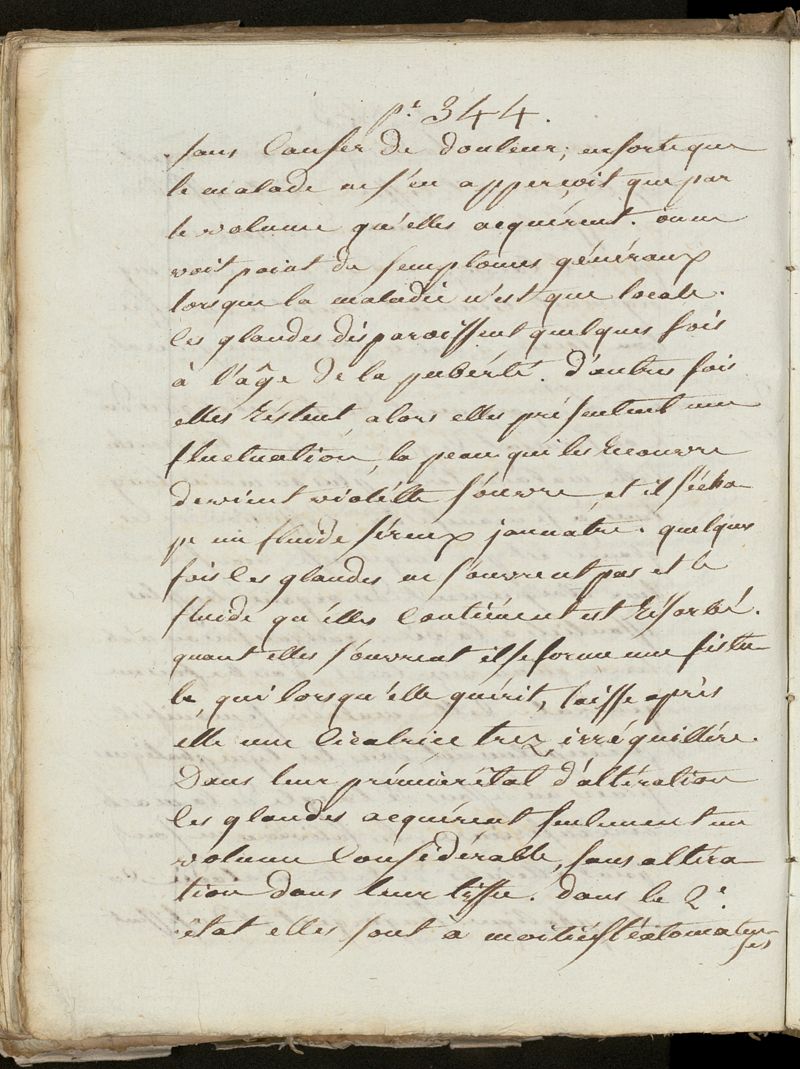 p.ᵉ 344.
sans causer de douleur; ensorte que
le malade ne s'en apperçoit que par
le volume qu'elles acquérent. on ne
voit point de semptomes généraux
lorsque la maladie n'est que locale.
les glandes disparoissent quelques fois
à l'âge de la puberté. d'autres fois
elles réstent, alors elles présentent une
fluctuation, la peau qui les recouvre
devient violétte s'ouvre, et il s'écha
pe un fluide séreux jaunatre. quelques
fois les glandes ne s'ouvrent pas et le
fluide qu'élles contiénent est résorbé.
quant elles s'ouvrent il se forme une fistu
le, qui lorsqu'elle guérit, laisse après
elle une cicatrice trez irréguillére.
Dans leur prémier état d'altération
les glandes acquérent seulement un
volume considérable, sans altéra
tion dans leur tissu. dans le 2.ᵉ
état elles sont a moitié stéatomateu
ses